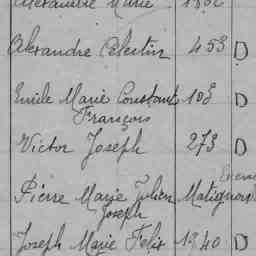 Alexandre Marie
Alexandre Célestin 453 D
Emile Marie Constant 108 D
François
Victor Joseph 273 D
Pierre Marie Julien Matignon
Joseph
Joseph Marie Felix 1940 D